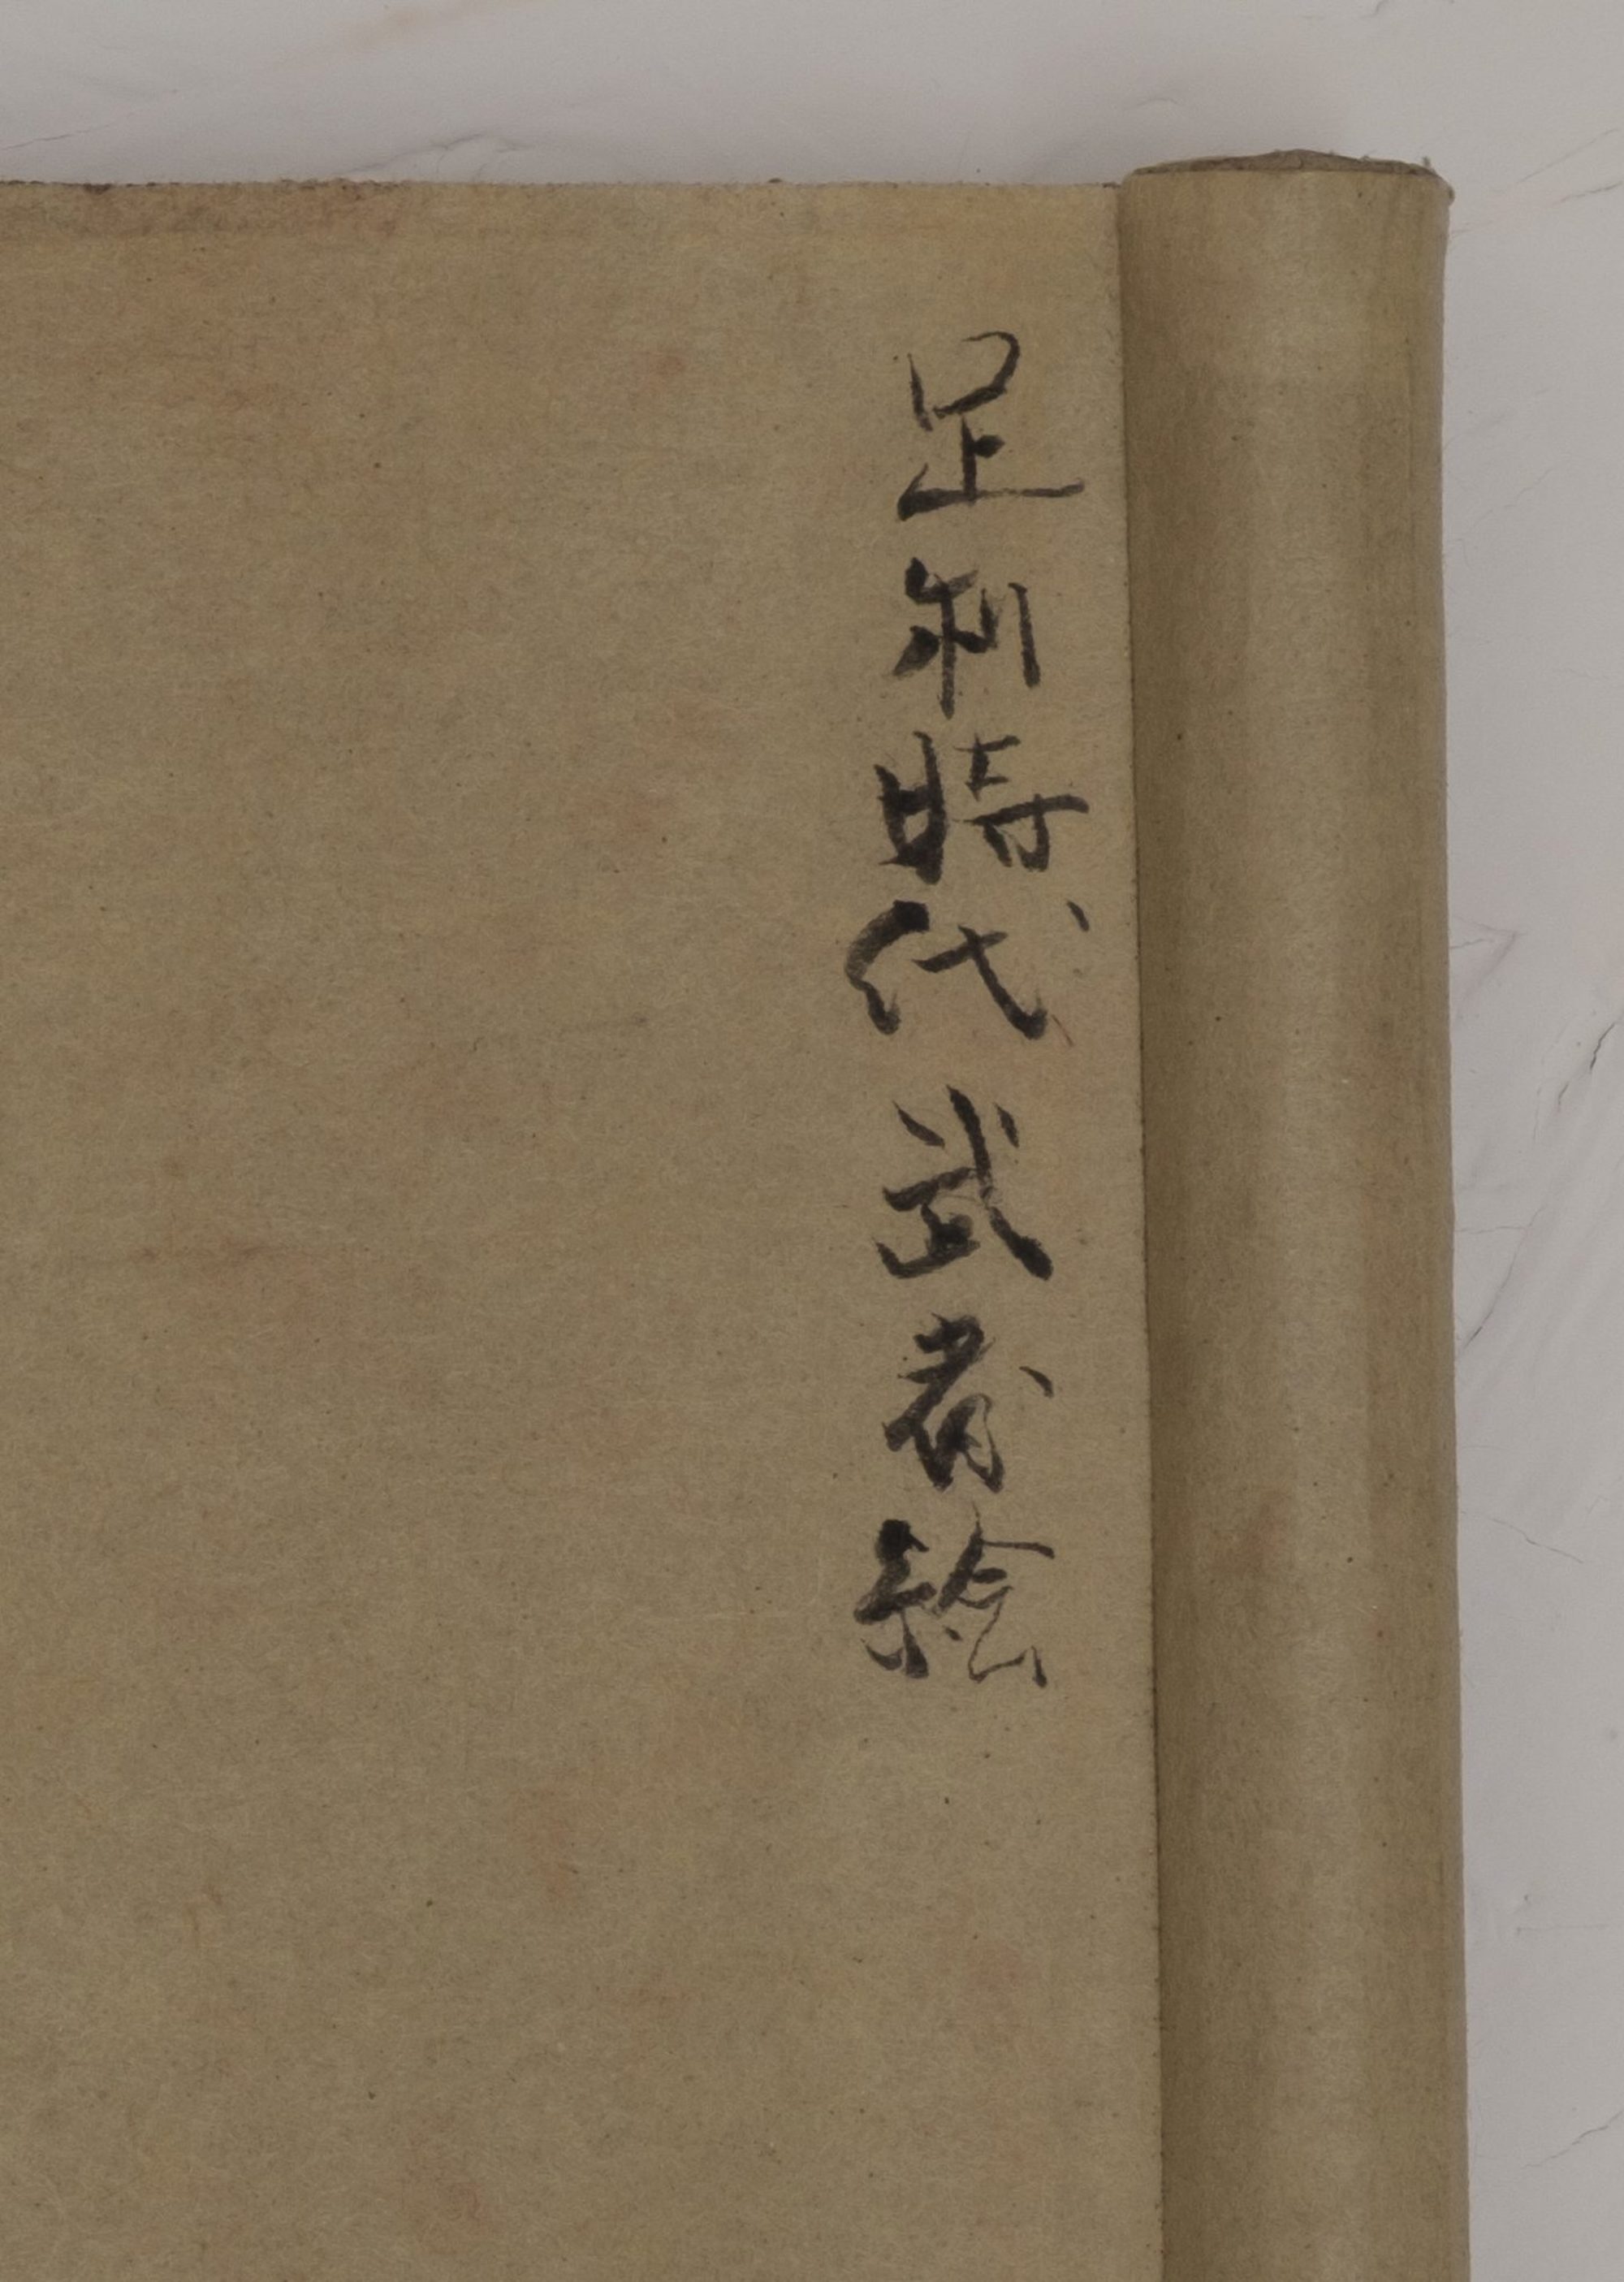 足利時代武者絵